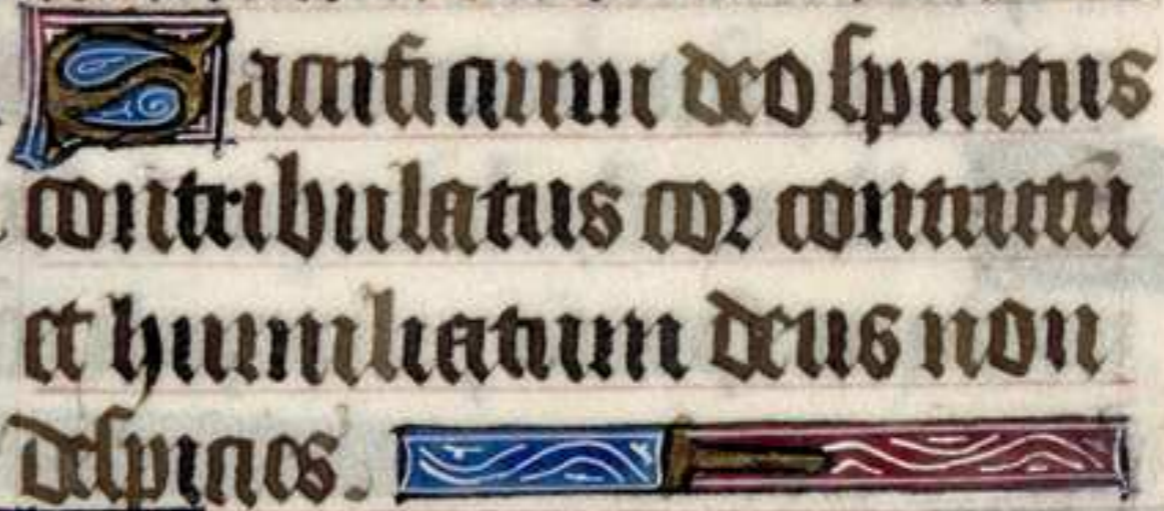 Sacrificium deo spiritus
contribulatus cor contritū
et humiliatum deus non
despicies.